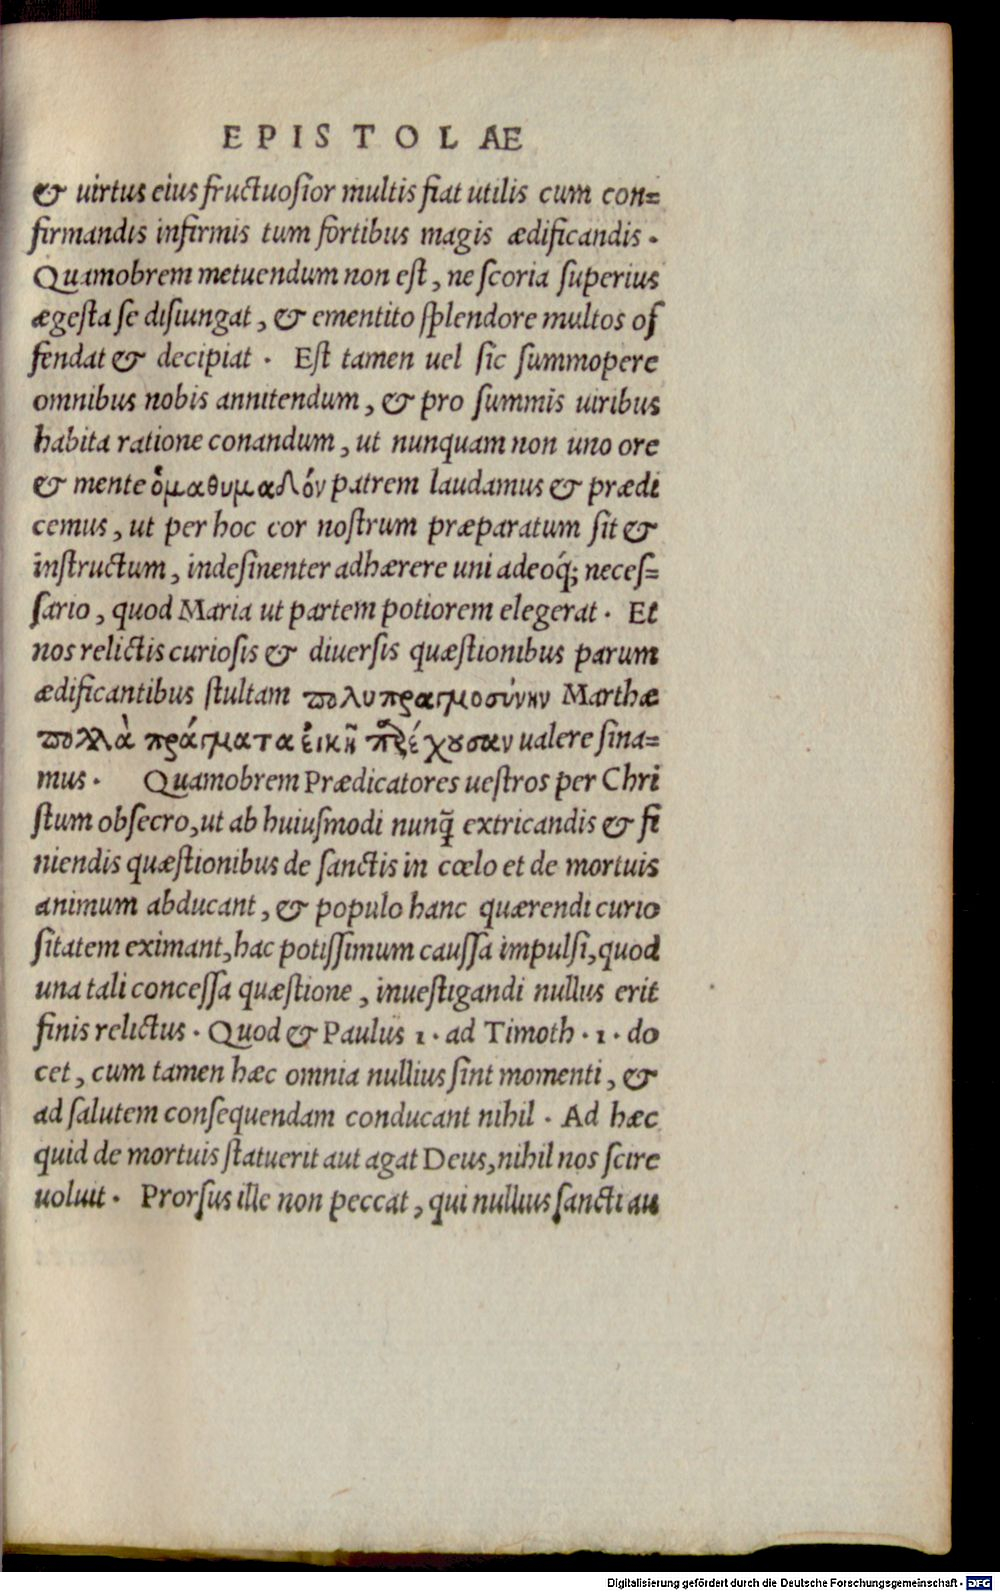 EPISTOLAE
& uirtus eius fructuosior multis fiat utilis cum con=
firmandis infirmis tum fortibus magis ædificandis .
Quamobrem metuendum non est, ne scoria superius
ægesta se disiungat, & ementito splendore multos of
fendat & decipiat . Est tamen uel sic summopere
omnibus nobis annitendum, & pro summis uiribus
habita ratione conandum, ut nunquam non uno ore
& mente ὁμαθυμαδόν patrem laudamus & prædi
cemus, ut per hoc cor nostrum præparatum sit &
instructum, indesinenter adhærere uni adeoq́; neces=
sario, quod Maria ut partem potiorem elegerat . Et
nos relictis curiosis & diuersis quæstionibus parum
ædificantibus stultam πολυπραγμοσύνην Marthæ
πολλὰ πράγματα εἰκῆ ualere sina=
mus . Quamobrem Prædicatores uestros per Chri
stum obsecro, ut ab huiusmodi nunq̃ extricandis & fi
niendis quæstionibus de sanctis in cœlo et de mortuis
animum abducant, & populo hanc quærendi curio
sitatem eximant, hac potissimum caussa impulsi, quod
una tali concessa quæstione, inuestigandi nullus erit
finis relictus . Quod & Paulus 1 . ad Timoth . 1 . do
cet, cum tamen hæc omnia nullius sint momenti, &
ad salutem consequendam conducant nihil . Ad hæc
quid de mortuis statuerit aut agat Deus, nihil nos scire
uoluit . Prorsus ille non peccat, qui nullius sancti au
Digitalisierung gefördert durch die Deutsche Forschungsgemeinschaft - DFG